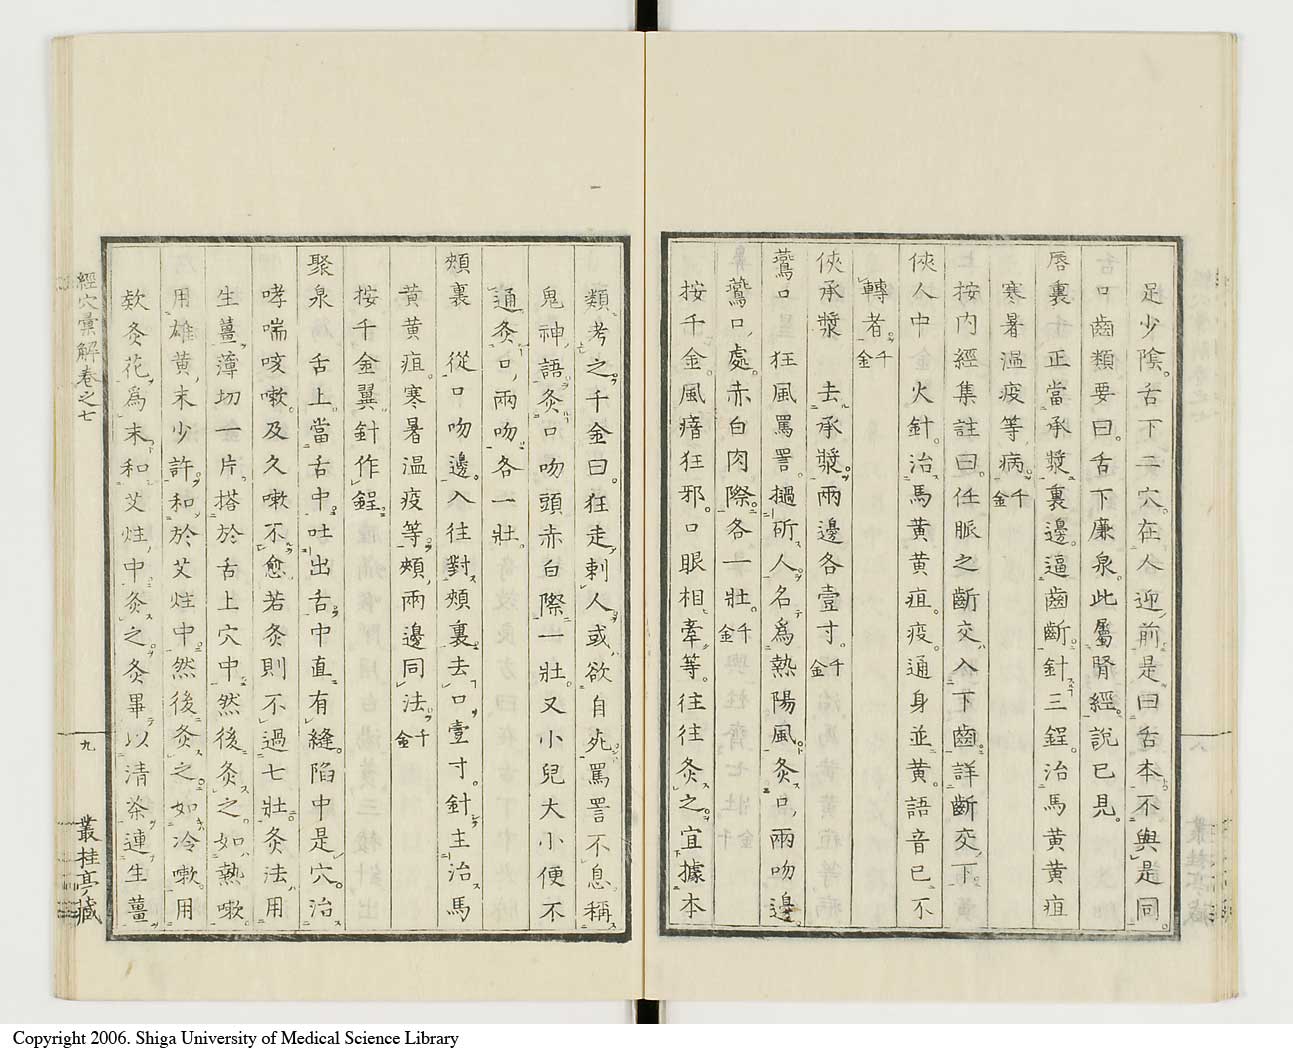 足少陰舌下二穴在人迎前是曰舌本不與是同
舌口齒類要曰舌下廉泉此屬腎經說已見
唇裏正當承漿裏邊逼齒齗針三鋥治馬黃黃疸
寒暑溫疫等病千金
按內經集註曰任脈之齗交入下齒詳齗交下
俠人中火針治馬黃黃疸疫通身並黃語音已不
轉者千金
俠承漿去承漿兩邊各壹寸千金
鷰口狂風罵詈撾斫人名為熱陽風灸口兩吻邊
鷰口處赤白肉際各一壯千金
按千金風瘖狂邪口眼相牽等往往灸之宜據本
類考之千金曰狂走刺人或欲自死罵詈不息稱
鬼神語灸口吻頭赤白際一壯又小兒大小便不
通灸口兩吻各一壯
頰裏從口吻邊入往對頰裏去口壹寸針主治馬
黃黃疸寒暑溫疫等頰兩邊同法千金
按千金翼針作鋥
聚泉舌上當舌中吐出舌中直有縫陷中是穴治
哮喘咳嗽及久嗽不愈若灸則不過七壯灸法用
生薑薄切一片搭於舌上穴中然後灸之如熱嗽
用雄黃末少許和於艾炷中然後灸之如冷嗽用
欵灸花為末和艾炷中灸之灸畢以清茶連生薑
經穴彙解卷之七
九
叢桂亭藏
Copyright 2006. Shiga University of Medical Science Library